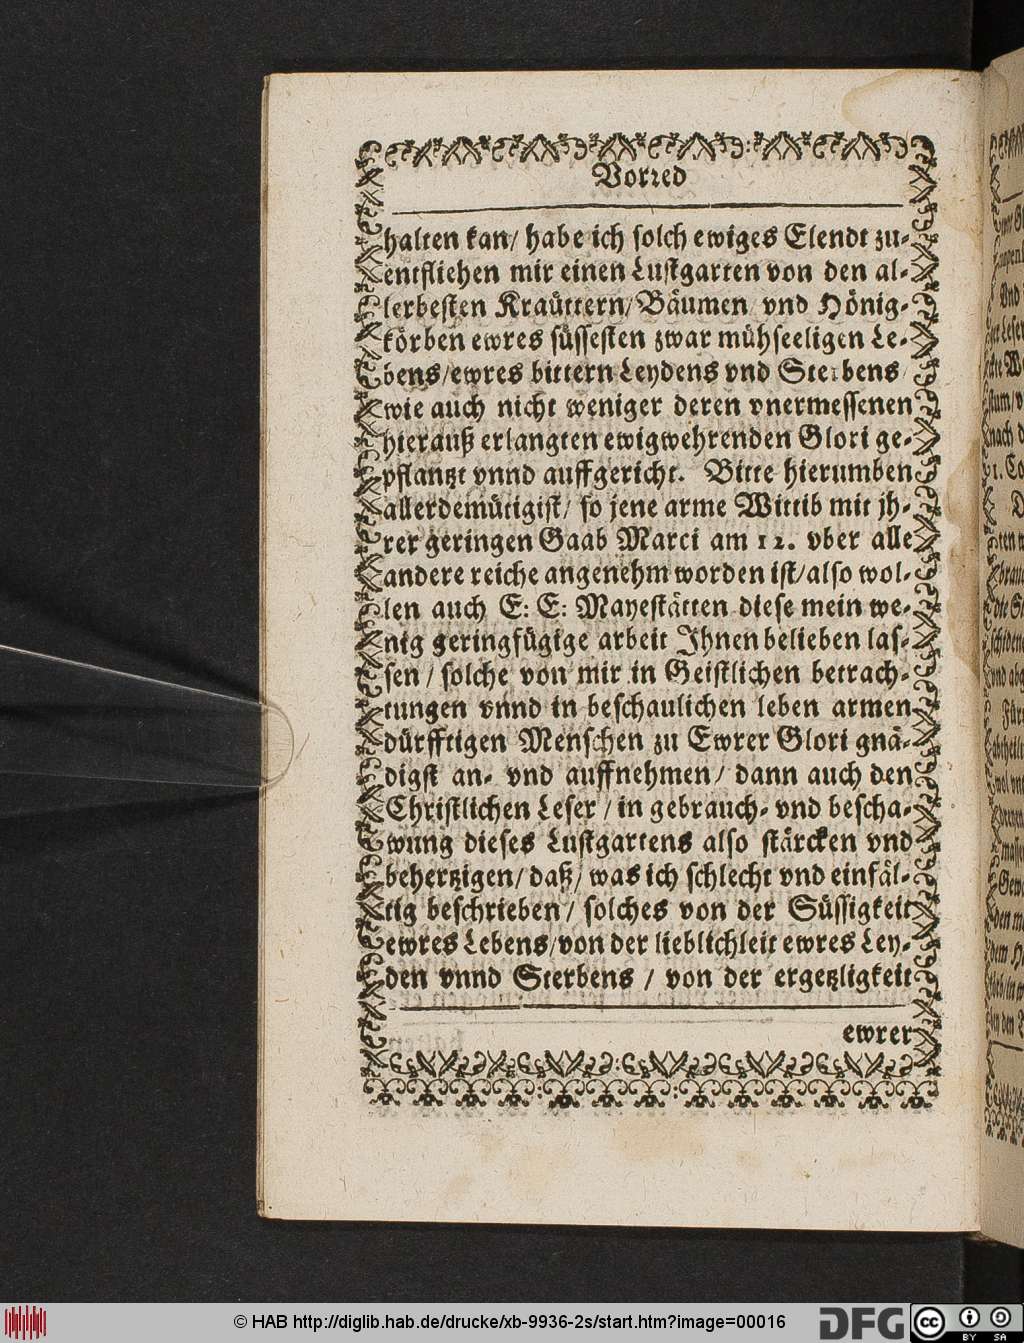 Vorred
halten kan/ habe ich solch ewiges Elendt zu-
entfliehen mir einen Lustgarten von den al-
lerbesten Kraüttern/ Bäumen/ vnd Hönig-
körben ewres süssesten zwar mühseeligen Le-
bens/ ewres bittern Leydens vnd Sterbens/
wie auch nicht weniger deren vnermessenen
hierauß erlangten ewigwehrenden Glori ge-
pflantzt vnnd auffgericht. Bitte hierumben
allerdemütigist/ so jene arme Wittib mit jh-
rer geringen Gaab Marci am 12. vber alle
andere reiche angenehm worden ist/ also wol-
len auch E: E: Mayestätten diese mein we-
nig geringfügige arbeit Jhnen belieben las-
sen / solche von mir in Geistlichen betrach-
tungen vnnd in beschaulichen leben armen
dürfftigen Menschen zu Ewrer Glori gnä-
digst an- vnd auffnehmen/ dann auch den
Christlichen Leser / in gebrauch- vnd bescha-
wung dieses Lustgartens also stärcken vnd
behertzigen/ daß/ was ich schlecht vnd einfäl-
tig beschrieben / solches von der Süssigkeit
ewres Lebens/ von der lieblichleit ewres Ley-
den vnnd Sterbens / von der ergetzligkeit
ewrer
© HAB http://diglib.hab.de/drucke/xb-9936-2s/start.htm?image=00016
DFG
cc BY SA